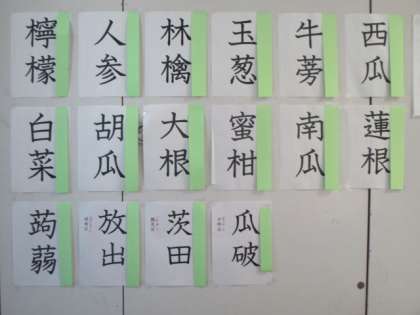 檸檬
人参
林檎
玉葱
牛蒡
西瓜
白菜
胡瓜
大根
蜜柑
南瓜
蓮根
蒟蒻
放出
茨田
瓜破